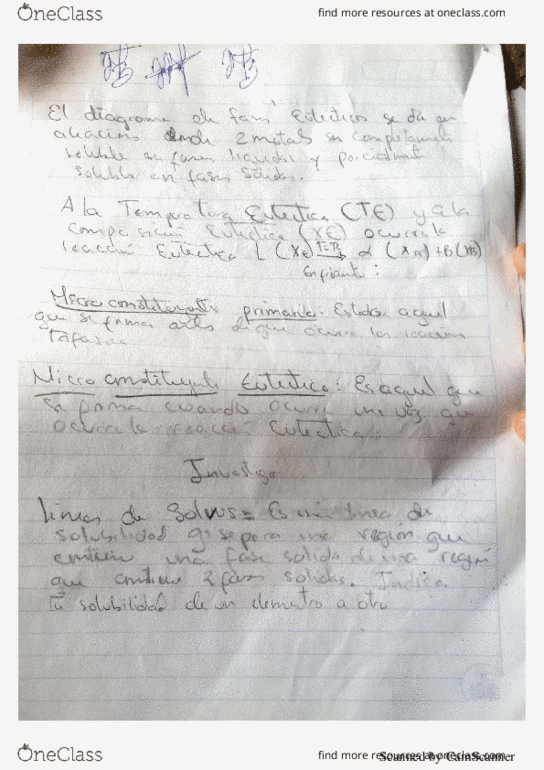 OneClass
find more resources at oneclass.com
El diagrama de fases Eutectico se da en
aleacions donde 2 metals son completamente
soluble en fases liquidas y parcialmente
solubles en fases sólidas.
A la Temperatura Eutectica (TE) y a la
composición Eutectica (XE) ocurre la
reacción Eutectica L (XE) T=TE α (Xα) + B (XB)
Enfriante:
Microconstituyente primario: Estado aquel
que se forma antes de que ocurra la reacción
Trifasica
Micro constituyente Eutectico: Es aquel que
se forma cuando ocurre una vez que
ocurre la reacción Eutectica.
Investiga
Linea de Solvus = Es una linea de
solubilidad q' separa una región que
contiene una fase solida de una región
que contiene 2 fases solidas. Indica
la solubilidad de un elemento a otro
OneClass
find more resources at oneclass.com
Scanned by CamScanner